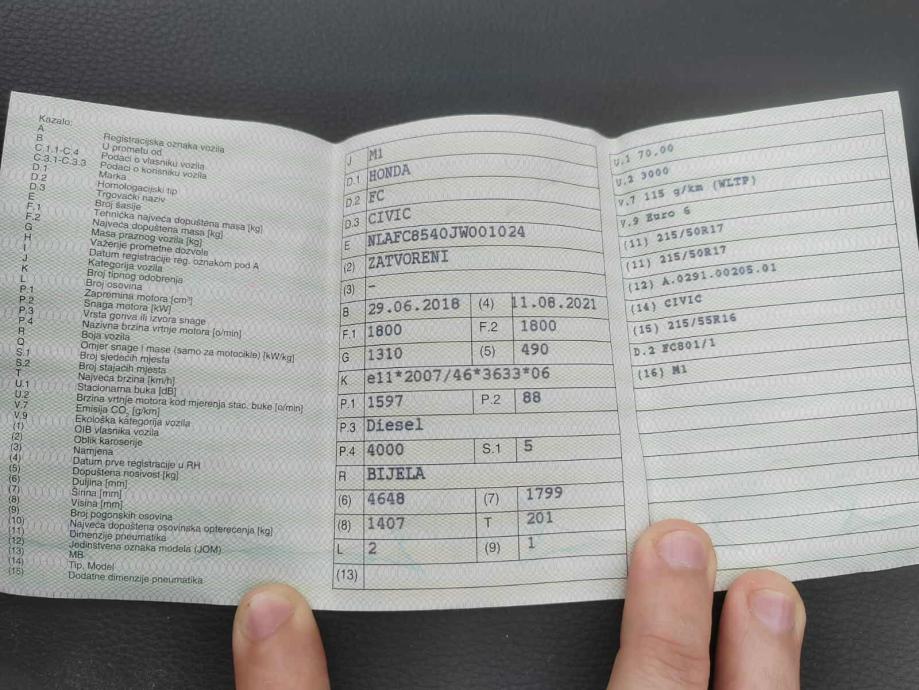 Kazalo:
A Registracijska oznaka vozila
B U prometu od
C.1.1-C.4 Podaci o vlasniku vozila
C.3.1-C.3.3 Podaci o korisniku vozila
D.1 Marka
D.2 Homologacijski tip
D.3 Trgovački naziv
E Broj šasije
F.1 Tehnička najveća dopuštena masa [kg]
F.2 Najveća dopuštena masa [kg]
G Masa praznog vozila [kg]
H Važenje prometne dozvole
I Datum registracije reg. oznakom pod A
J Kategorija vozila
K Broj tipnog odobrenja
L Broj osovina
P.1 Zapremina motora [cm³]
P.2 Snaga motora [kW]
P.3 Vrsta goriva ili izvora snage
P.4 Nazivna brzina vrtnje motora [o/min]
R Boja vozila
Q Omjer snage i mase (samo za motocikle) [kW/kg]
S.1 Broj sjedećih mjesta
S.2 Broj stajaćih mjesta
T Najveća brzina [km/h]
U.1 Stacionarna buka [dB]
U.2 Brzina vrtnje motora kod mjerenja stac. buke [o/min]
V.7 Emisija CO₂ [g/km]
V.9 Ekološka kategorija vozila
(1) OIB vlasnika vozila
(2) Oblik karoserije
(3) Namjena
(4) Datum prve registracije u RH
(5) Dopuštena nosivost [kg]
(6) Duljina [mm]
(7) Širina [mm]
(8) Visina [mm]
(9) Broj pogonskih osovina
(10) Najveća dopuštena osovinska opterećenja [kg]
(11) Dimenzije pneumatika
(12) Jedinstvena oznaka modela (JOM)
(13) MB
(14) Tip, Model
(15) Dodatne dimenzije pneumatika
J M1
D.1 HONDA
D.2 FC
D.3 CIVIC
E NLAFC8540JW001024
(2) ZATVORENI
(3) -
B 29.06.2018 (4) 11.08.2021
F.1 1800 F.2 1800
G 1310 (5) 490
K e11*2007/46*3633*06
P.1 1597 P.2 88
P.3 Diesel
P.4 4000 S.1 5
R BIJELA
(6) 4648 (7) 1799
(8) 1407 T 201
L 2 (9) 1
(13)
U.1 70.00
U.2 3000
V.7 115 g/km (WLTP)
V.9 Euro 6
(11) 215/50R17
(11) 215/50R17
(12) A.0291.00205.01
(14) CIVIC
(15) 215/55R16
D.2 FC801/1
(16) M1